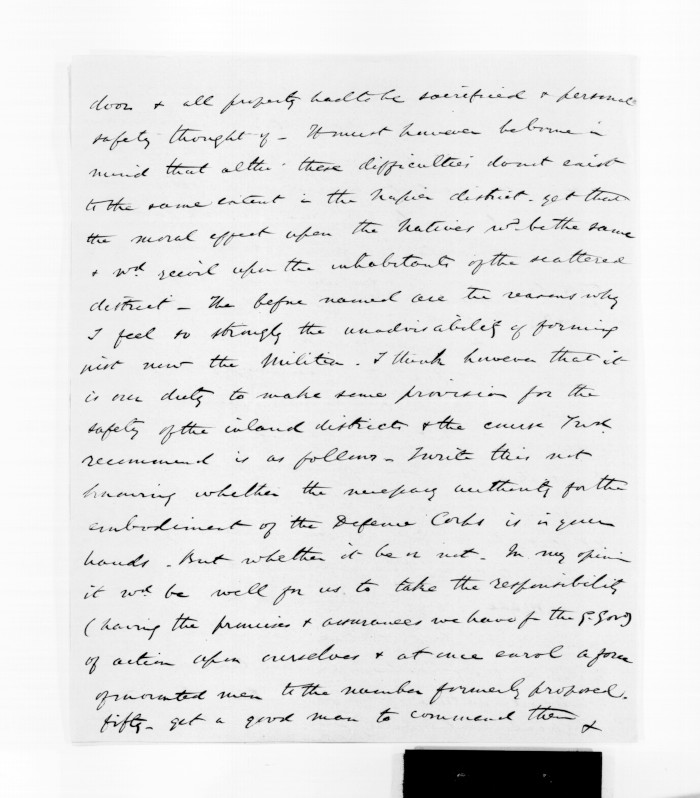 door & all property had to be sacrificed & personal
safety thought of - It must however be borne in
mind that altho' these difficulties do not exist
to the same extent in the Napier district - yet that
the moral effect upon the Natives wd. be the same
& wd. recoil upon the inhabitants of the scattered
district - The before named are the reasons why
I feel so strongly the unadvisability of forming
just now the Militia. I think however that it
is our duty to make some provision for the
safety of the inland districts & the course I wd.
recommend is as follows - I write this not
knowing whether the necessary authority for the
embodiment of the Defence Corps is in your
hands. But whether it be or not. In my opinion
it wd. be well for us to take the responsibility
(having the promises & assurances we have fm the G. Govt)
of action upon ourselves & at once enrol a force
of mounted men to the number formerly proposed.
fifty - get a good man to command them &